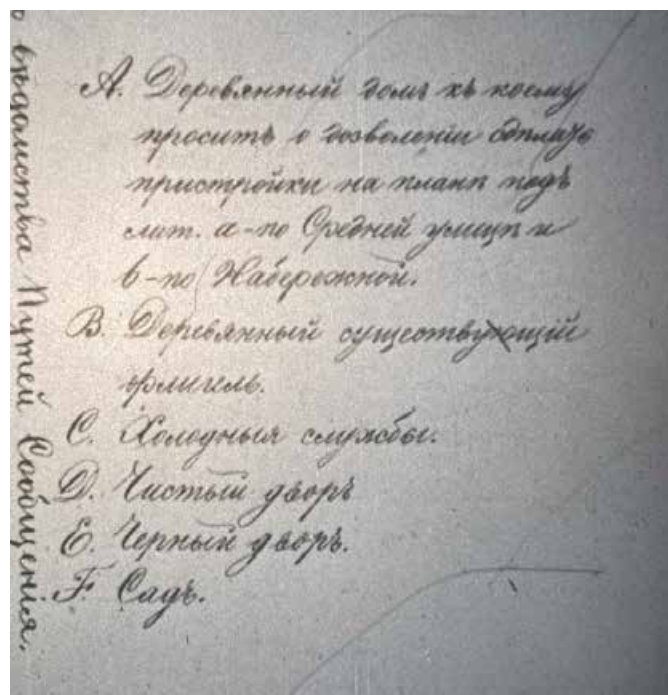 А. Деревянный домъ къ коему
проситъ о дозволеніи сдѣлать
пристройки на планѣ подъ
лит. а-по Средней улицѣ и
b-по Набережной.
B. Деревянный существующій
флигель.
C. Холодныя службы.
D. Чистый дворъ
E. Черный дворъ.
F. Садъ.
вѣдомства Путей Сообщенія.